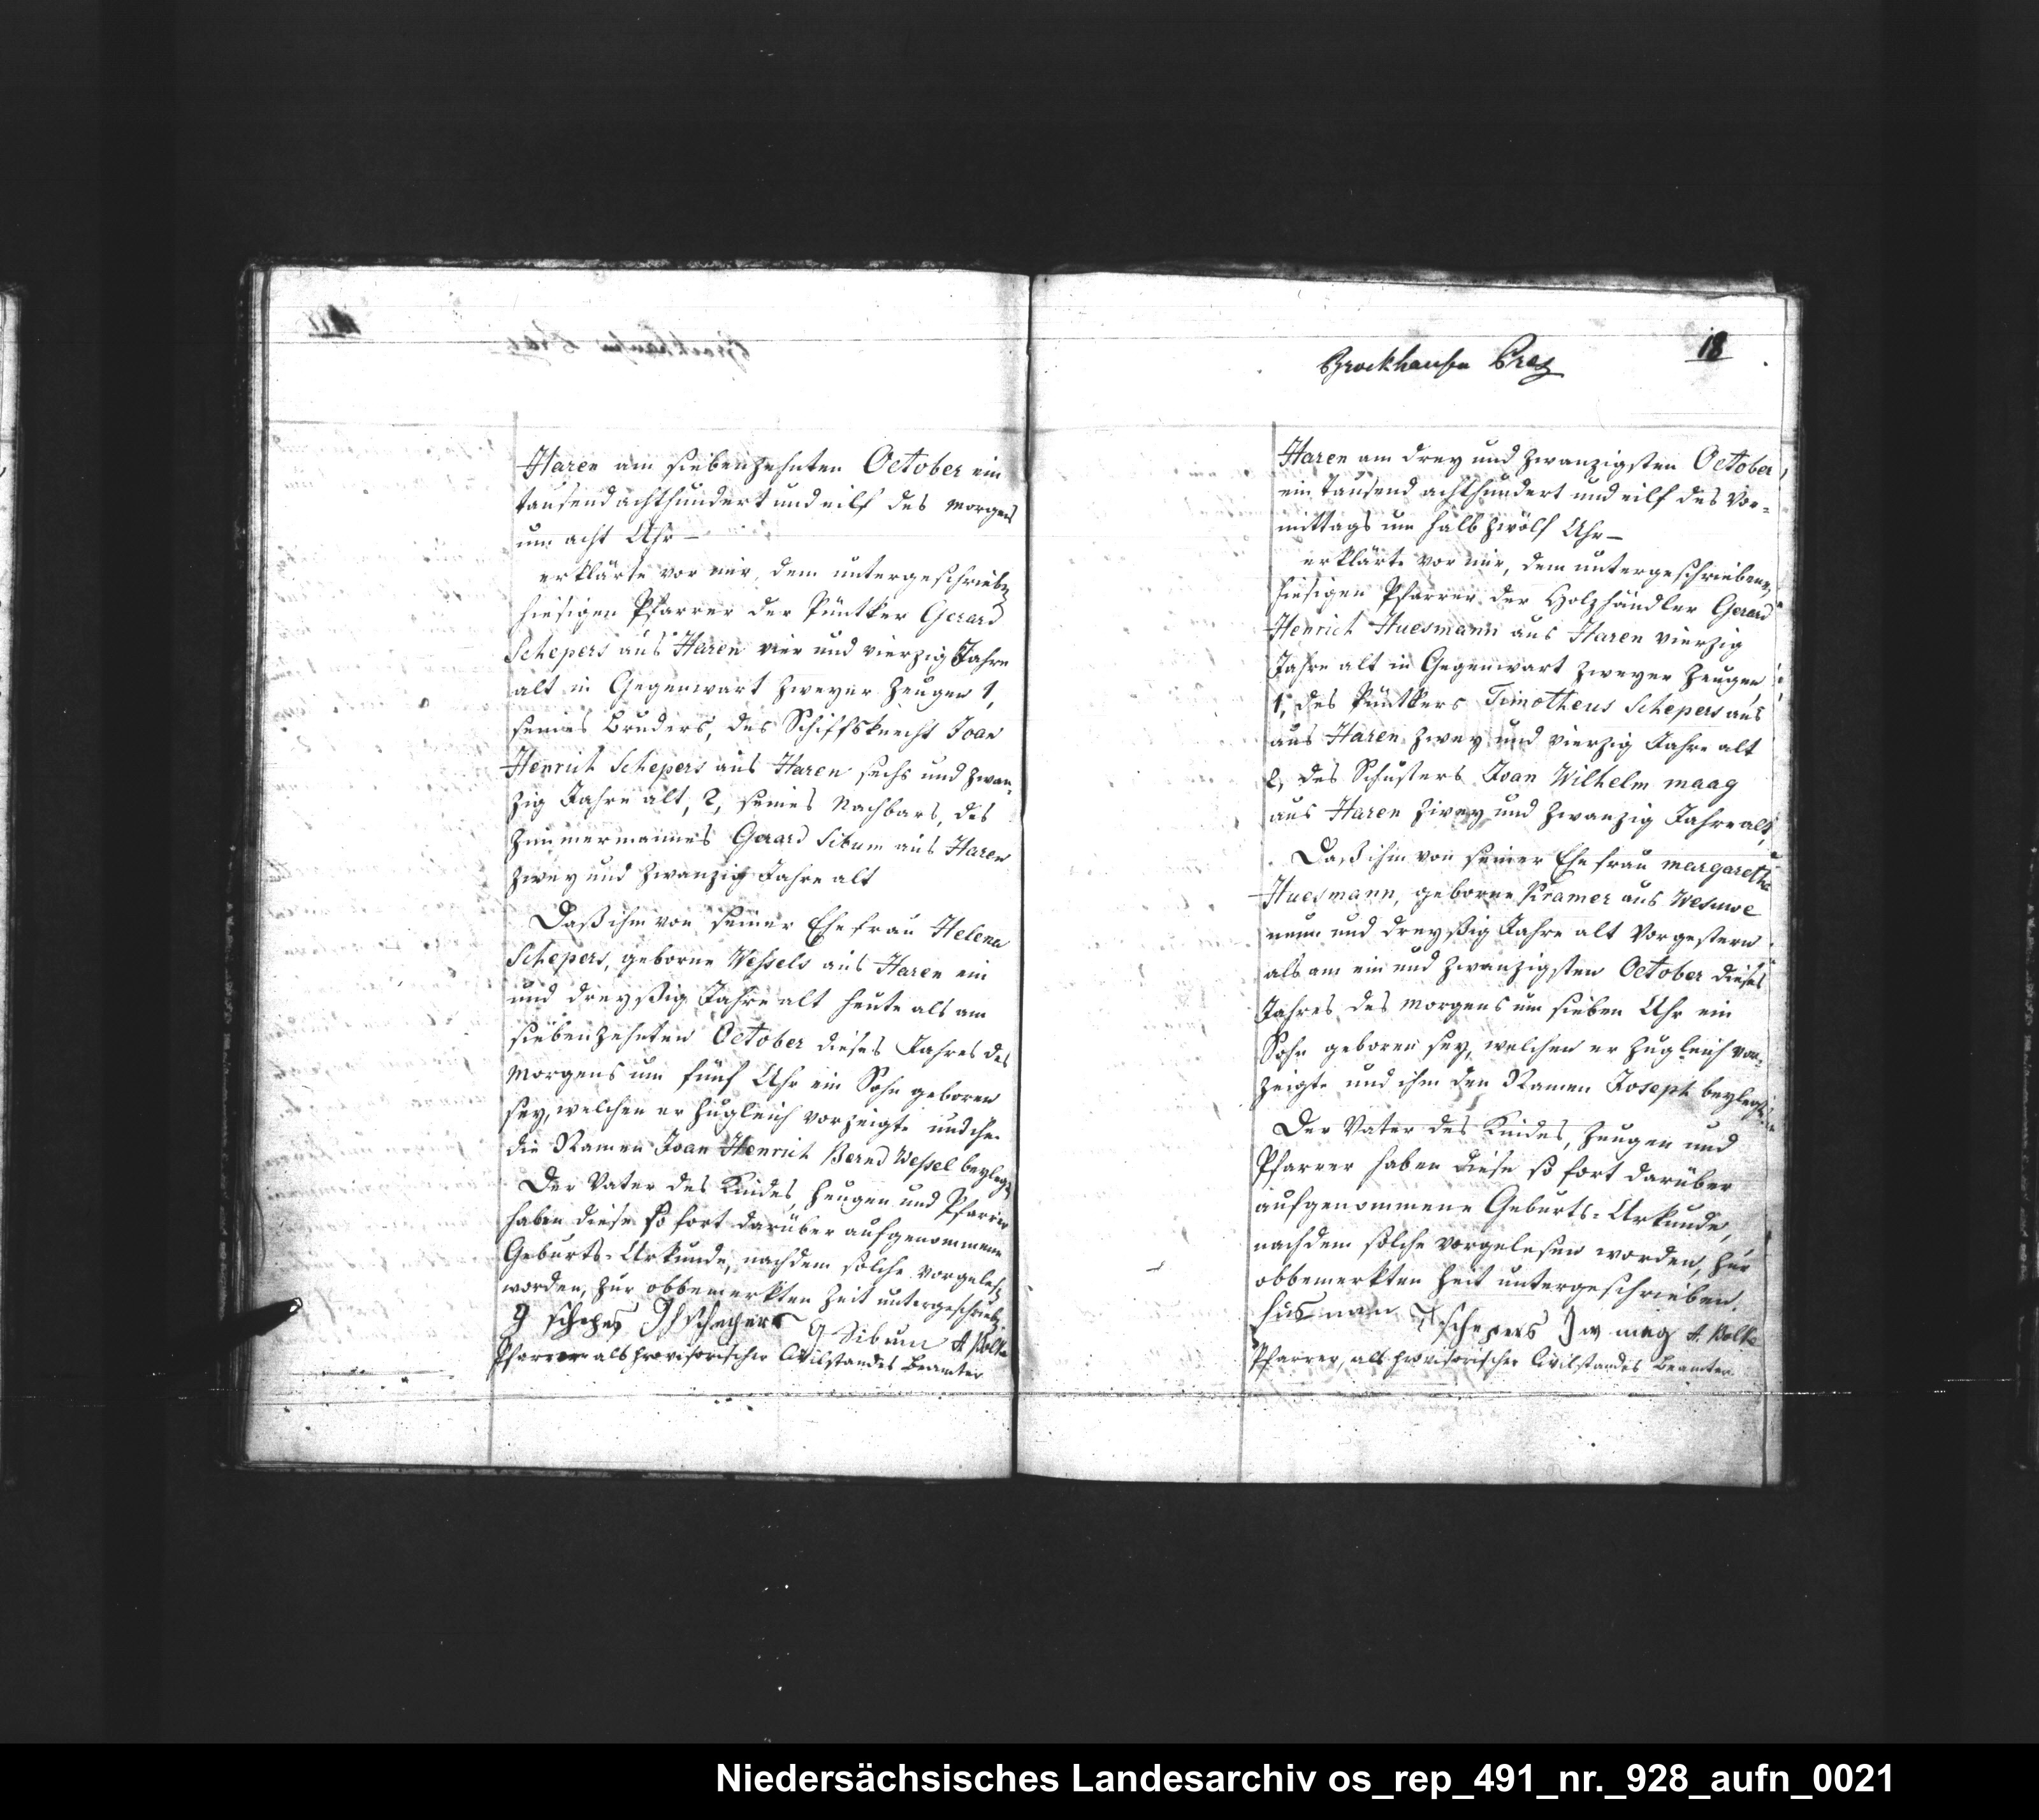 Haren am siebenzehnten October ein
tausend achthundert und eilf des Morgens
um acht Uhr —
erklärte vor mir, dem unterzeschrieben
hiesigen Pfarrer der Püntker Gerard
Schepers aus Haren vier und vierzig Jahre
alt in Gegenwart zweyer Zeugen 1,
seines Bruders, des Schiffsknecht Joan
Henrich Schepers aus Haren sechs und zwan-
zig Jahre alt, 2, seines Nachbars, des
Zimmermannes Gerard Sibum aus Haren
zwey und zwanzig Jahre alt
Daß ihm von seiner Ehefrau Helena
Schepers, geborne Wessels aus Haren ein
und dreyßig Jahre alt heute als am
siebenzehnten October dieses Jahres des
Morgens um fünf Uhr ein Sohn geboren
sey, welchen er zugleich vorzeigte und ihm
die Namen Joan Henrich Bernd Wessel beylegt
Der Vater des Kindes, Zeugen und Pfarrer
haben diese so fort darüber aufgenommene
Geburts-Urkunde, nachdem solche vorgelesen
worden, zur obbemerkten Zeit untergeschrieben.
G schepes JH schepers G Sibum A Bolke
Pfarrer als provisorischer Civilstandes Beamter
Brockhausen Pres
18
Haren am drey und zwanzigsten October,
ein tausend achthundert und eilf des Vor-
mittags um halb zwölf Uhr —
erklärte vor mir, dem untergeschriebenen
hiesigen Pfarrer der Holzhändler Gerard
Henrich Huesmann aus Haren vierzig
Jahre alt in Gegenwart zweyer Zeugen
1, des Püntkers Timotheus Schepers aus
aus Haren zwey und vierzig Jahre alt
2, des Schusters Joan Wilhelm Maag
aus Haren zwey und zwanzig Jahre alt,
Daß ihm von seiner Ehefrau Margaretha
Huesmann, geborne Kramer aus Wesuwe
neun und dreyßig Jahre alt vorgestern
als am ein und zwanzigsten October dieses
Jahres des Morgens um sieben Uhr ein
Sohn geboren sey, welchen er zugleich vor-
zeigte und ihm den Namen Joseph beylegte
Der Vater des Kindes, Zeugen und
Pfarrer haben diese so fort darüber
aufgenommene Geburts-Urkunde,
nachdem solche vorgelesen worden, zur
obbemerkten Zeit untergeschrieben.
husman T schepers J w mag A. Bolke
Pfarrer, als provisorischer Civilstandes Beamter
Niedersächsisches Landesarchiv os_rep_491_nr._928_aufn_0021